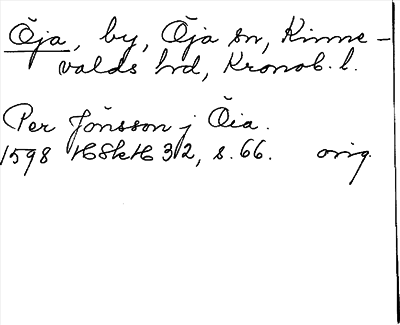 Öja, by, Öja sn, Kinne-
valds hd, Kronob. l.
Per Jönsson j Öia.
1598 HSkH 32, s. 66. orig.